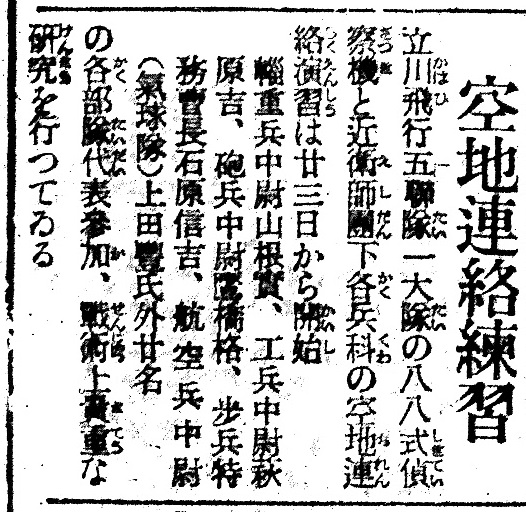 空地連絡練習
立川飛行五聯隊一大隊の八八式偵
察機と近衛師團下各兵科の空地連
絡演習は廿三日から開始
輜重兵中尉山根實、工兵中尉萩
原吉、砲兵中尉鷹橋格、步兵特
務曹長石原信吉、航空兵中尉
(氣球隊)上田豐氏外廿名
の各部隊代表參加、戰術上貴重な
研究を行つてゐる